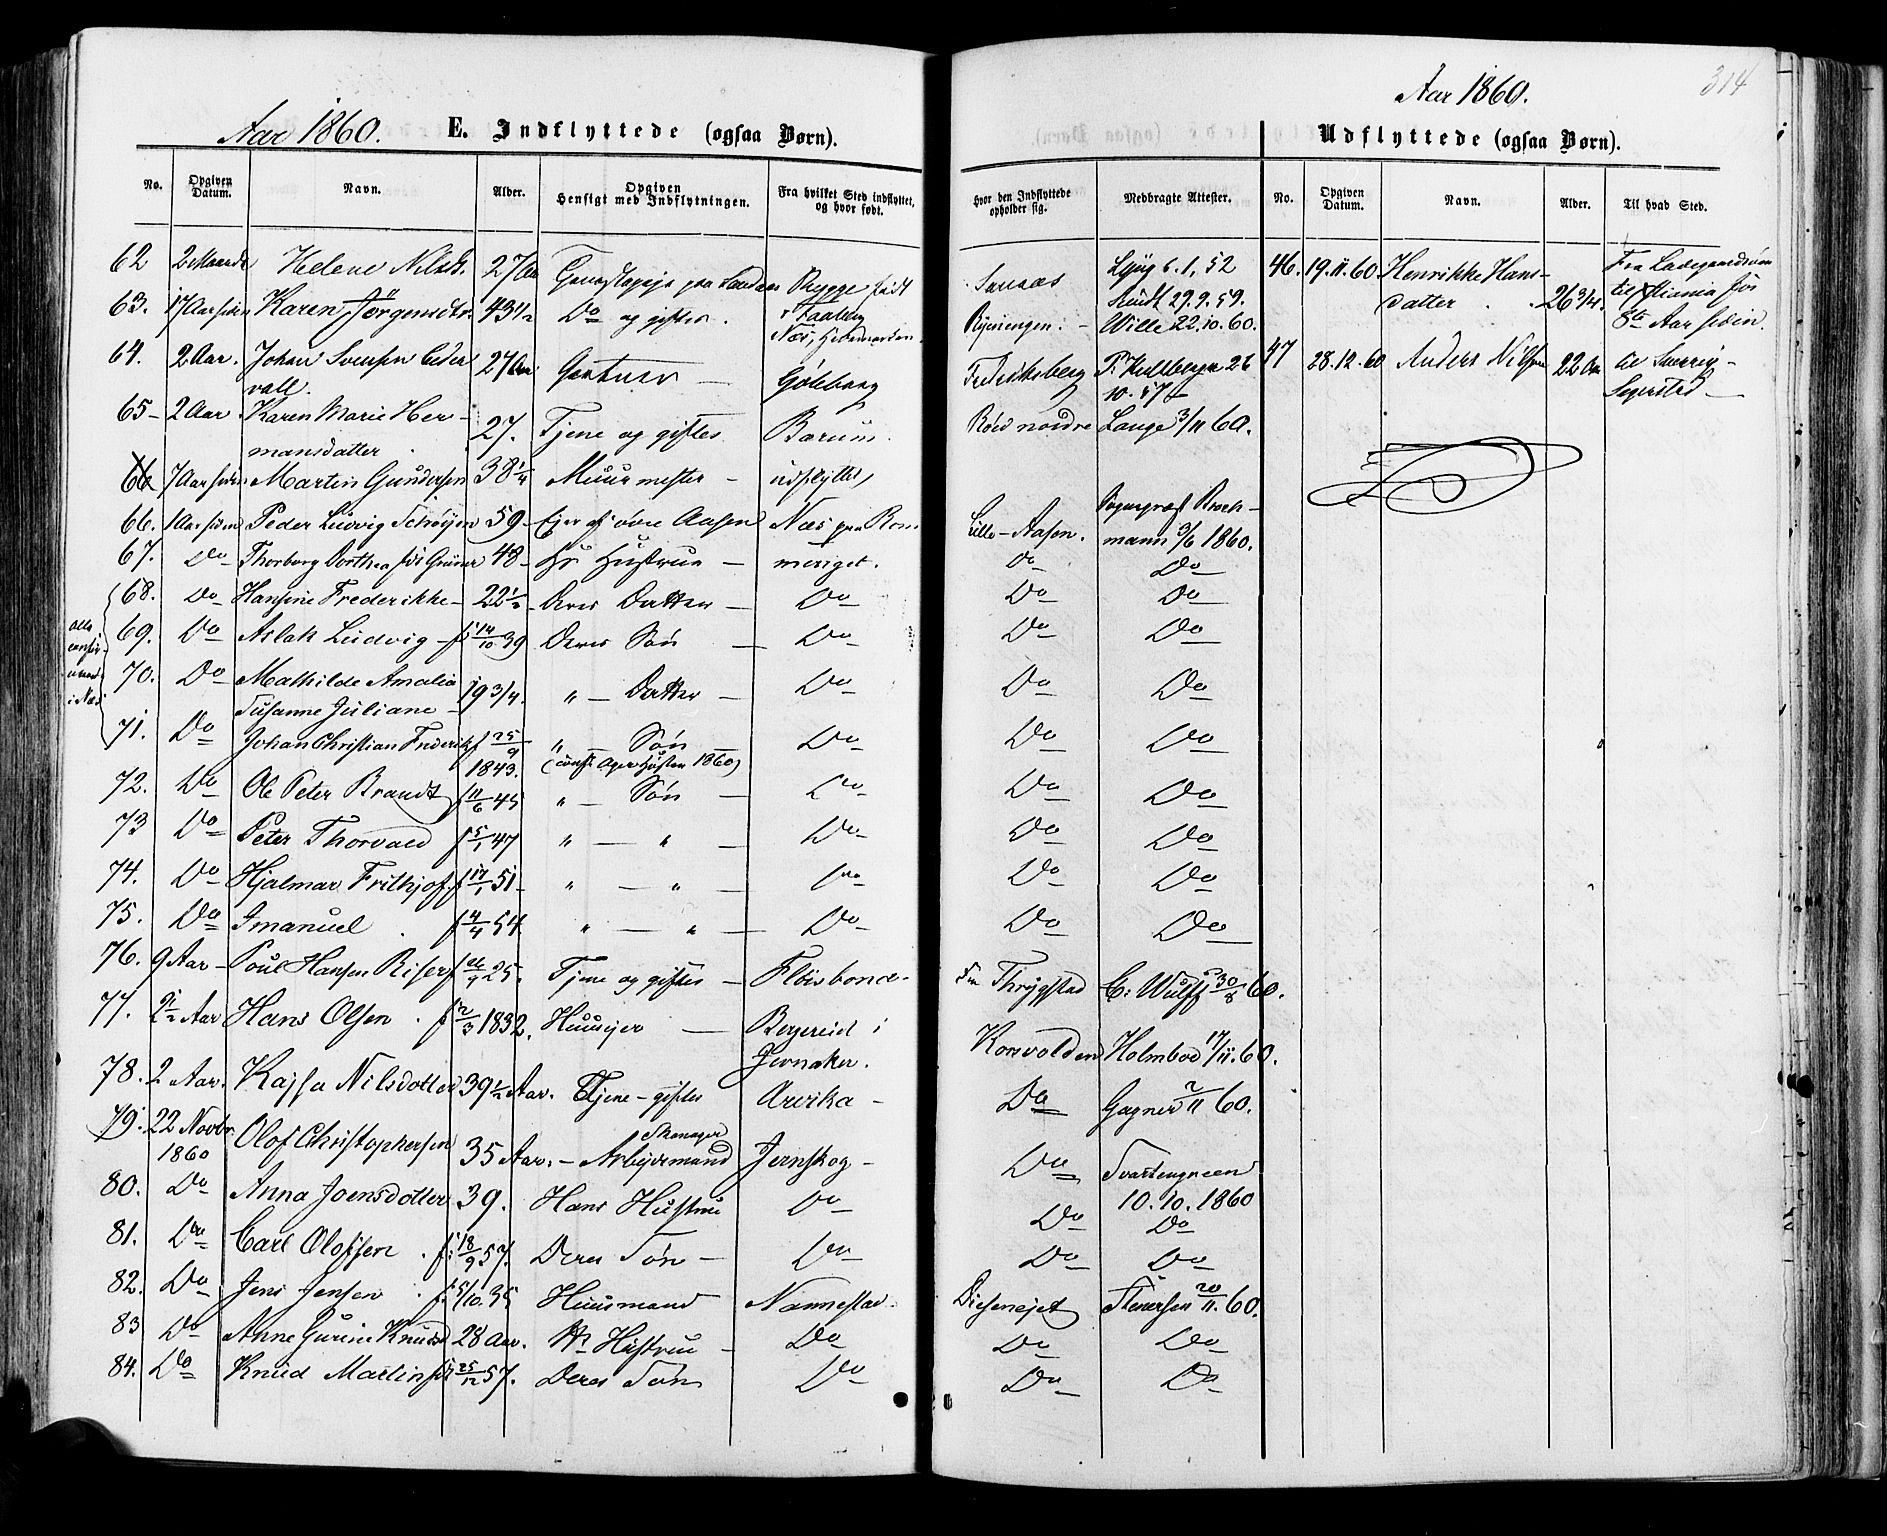 Aar 1860. E. Indflyttede (ogsaa Børn).
No. Opgiven Datum. Navn. Alder. Opgiven Hensigt med Indflytningen. Fra hvilket Sted indflyttet, og hvor født.
62 Helene Nilsd. 27 Aar Rygge født
63. 17 Aar siden Karen Jørgensdtr. 43 1/2 Do og giftes.
64. 2 Aar. Johan Svensen Ceder 27 Aar Gartner — Göteborg
vall.
65 - 2 Aar. Karen Marie Her- 27. Tjene og giftes Barum.
mansdatter
66 7 Aar siden Martin Gundersen 38 1/4 Muurmester - udflyttet
66. 1 Aar siden Peder Ludvig Schøyen 59 - Ejer af øvre Aasen Næs paa Rom-
67. Do Thorborg Dorthea født Grüner 48 - Hs Hustrue - meriget.
68. Do Hansine Frederikke - 22 1/2 Deres Datter - Do
69. Do Aslak Ludvig - f 14/10 39 Deres Søn - Do
70. Do Mathilde Amalia 19 3/4. " - Datter - Do
Susanne Juliane -
71. Do Johan Christian Frederik f 25/9 1843. " - Søn - Do
(conf. Agers Høsten 1860)
72. Do Ole Peter Brandt f 11/6 45 " - Søn - Do
73 Do Peter Thorvald f 5/1 47 " - " - Do
74. Do Hjalmar Frithjof. f 17/1 51 - " - " - Do
75. Do Imanuel . f 4/4 54 " - " - Do
76. 9 Aar - Poul Hansen Riser f 26/9 25. Tjene og giftes - Fløisbonde -
77. 2 1/2 Aar Hans Olsen . f 2/3 1832. Huusejer — Bergereid i
Jevnaker.
78. 2 Aar. Kajsa Nilsdotter 39 1/2 Aar. Tjene - giftes Arvika -
79. 22 Novbr. 1860 Olof Christophersen 35 Aar. - Arbejdsmand Jernskog -
80. Do Anna Joensdotter 39. Hans Hustru Do
81. Do Carl Olofsen . f. 18/9 57. Deres Søn — Do
82. Do Jens Jensen . f. 5/10. 35 Huusmand Nannestad.
83 Do Anne Gurine Knudsd 28 Aar. Hs Hustrue - Do
84. Do Knud Martin f 25/12 57. Deres Søn Do
Alle
i Næs
Aar 1860. 314
Udflyttede (ogsaa Børn).
Hvor den Indflyttede opholder sig. Medbragte Attester. No. Opgiven Datum. Navn. Alder. Til hvad Sted.
Sansaas 6. 1. 52 46. 19. 11. 60. Henrikke Hans- 26 3/4. Fra
29. 9. 59. datter . til Xtiania for
Ryenengen. - Wille 22. 10. 60. 8te Aar siden.
Frederiksberg 26 47 28. 12. 60 Anders Nilsen 22 Aar til Sverrig -
10. 57 Segerstad —
Røed nordre Lange 3/11 60.
Lille - Aasen. Sogneprest Broch-
mann 3/6 1860.
Do Do
Do Do
Do Do
Do Do
Do Do
Do Do
Do Do
Do Do
Do Do
Thrygstad C. Wulff 30/8 60.
Korsvolden Holmboe 17/11. 60.
Do Gagner 2/11 60.
Do Svartengreen
10. 10. 1860
Do Do
Do Do
Diesenejet Stenersen 20/11. 60.
Do Do
Do Do